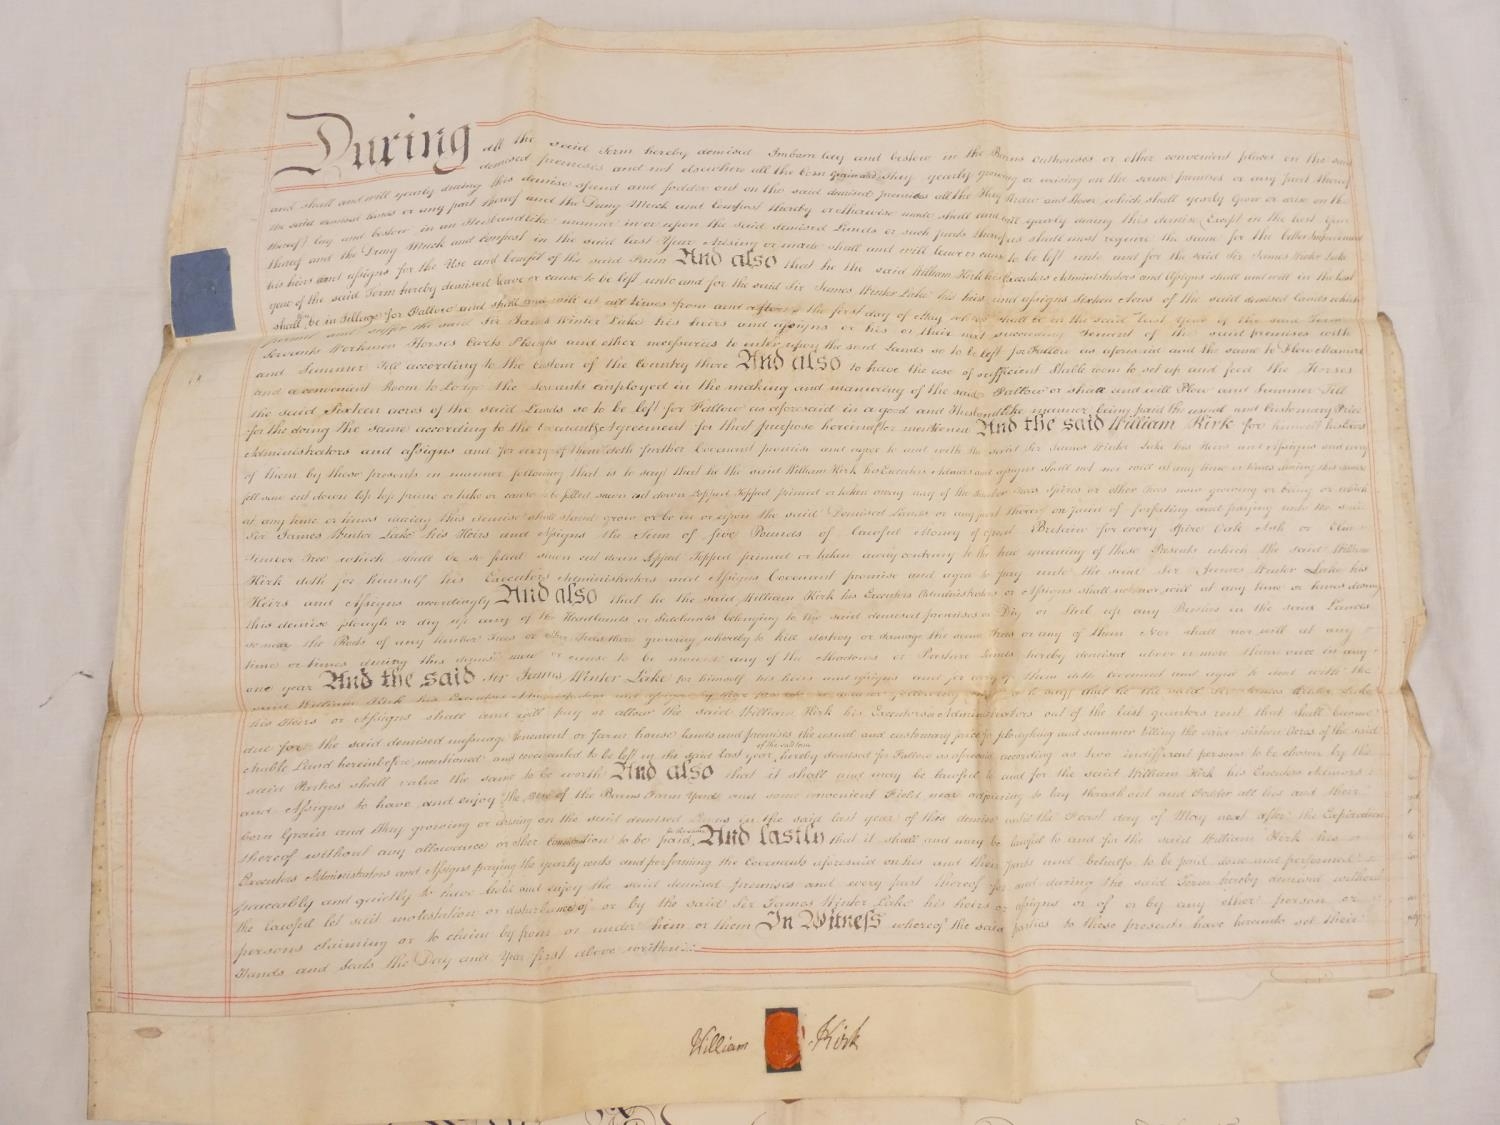 During all the said Term hereby demised Imbarn lay and bestow in the Barns Outhouses or other convenient places on the said
demised premises and not elsewhere all the Corn Grain and Hay yearly growing or arising on the same premises or any part thereof
and shall and will yearly during this demise spend and fodder out on the said demised premises all the Hay and Stover which shall yearly Grow or arise on the
the said demised lands or any part thereof and the Dung Muck and Compost thereby or otherwise made shall and will yearly during this demise Except in the last Year
thereof lay and bestow in an Husbandlike manner in or upon the said demised Lands or such parts thereof as shall most require the same for the better Improvement
thereof and the Dung Muck and Compost in the said last Year Arising or made shall and will leave or cause to be left unto and for the said Sir James Winter Lake
his heirs and assigns for the Use and benefit of the said Farm And also that he the said William Kirk his Executors Administrators and Assigns shall and will in the last
year of the said Term hereby demised leave or cause to be left unto and for the said Sir James Winter Lake his heirs and assigns Sixteen Acres of the said demised Lands which
shall be in Tillage for Fallow and shall and will at all times from and after the first day of May which shall be in the said last Year of the said Term
permit and suffer the said Sir James Winter Lake his heirs and assigns or his or their next succeeding Tenant of the said premises with
Servants Workmen Horses Carts Ploughs and other necessaries to enter upon the said Lands so to be left for Fallow as aforesaid and the same to Plow Manure
and Summer Till according to the Custom of the Country there And also to have the use of sufficient Stable room to set up and feed the Horses
and a convenient Room to Lodge the Servants employed in the making and manuring of the said Fallow or shall and will Plow and Summer Till
the said Sixteen acres of the said Lands so to be left for Fallow as aforesaid in a good and Husbandlike manner being paid the usual and Customary Price
for the doing the same according to the Covenant & Agreement for that purpose hereinafter mentioned And the said William Kirk for himself his Exors
Administrators and assigns and for every of them doth further Covenant promise and agree to and with the said Sir James Winter Lake his Heirs and Assigns and every
of them by these presents in manner following that is to say that he the said William Kirk his Executors Admors and assigns shall not nor will at any time or times during this demise
fell saw cut down lop top prime or take or cause to be felled sawn cut down Lopped Topped primed or taken away any of the Timber Trees Spires or other Trees now growing or being or which
at any time or times during this demise shall stand grow or be in or upon the said Demised Lands or any part thereof on pain of forfeiting and paying unto the said
Sir James Winter Lake his Heirs and Assigns the Sum of five Pounds of Lawful Money of Great Britain for every Spire Oak Ash or Elm
Timber Tree which shall be so felled sawn cut down Lopped Topped primed or taken away contrary to the true meaning of these Presents which the said William
Kirk doth for himself his Executors Administrators and Assigns Covenant promise and agree to pay unto the said Sir James Winter Lake his
Heirs and Assigns accordingly And also that he the said William Kirk his Executors Administrators or Assigns shall not nor will at any time or times during
this demise plough or dig up any of the Headlands or Sidelands belonging to the said demised premises or Dig or Stub up any Bushes in the said Lands
so near the Roots of any timber Trees or other Trees there growing whereby to kill destroy or damage the same Trees or any of them Nor shall nor will at any
time or times during this demise mow or cause to be mowed any of the Meadows or Pasture Lands hereby demised above or more than once in any
one year And the said Sir James Winter Lake for himself his heirs and assigns and for every of them doth Covenant and agree to and with the
said William Kirk his Executors Administrators and assigns by these presents in manner following that is to say that he the said Sir James Winter Lake
his Heirs or Assigns shall and will pay or allow the said William Kirk his Executors or Administrators out of the last quarters rent that shall become
due for the said demised messuage Tenement or farm house lands and premises the usual and customary price for ploughing and summer tilling the said sixteen Acres of the said
arable Land hereinbefore mentioned and covenanted to be left in the said last year of the said term hereby demised for Fallow as aforesaid according as two indifferent persons to be chosen by the
said Parties shall value the same to be worth And also that it shall and may be lawful to and for the said William Kirk his Executors Admors
and Assigns to have and enjoy the use of the Barns Farm Yard and some convenient Field near adjoining to lay thrash out and Fodder all his and their
Corn Grain and Hay growing or arising on the said demised Lands in the said last year of this demise until the Feast day of May next after the Expiration
thereof without any allowance or other Consideration to be paid for the same And lastly that it shall and may be lawful to and for the said William Kirk his
Executors Administrators and Assigns paying the yearly rents and performing the Covenants aforesaid on his and their parts and behalfs to be paid done and performed
peaceably and quietly to have hold and enjoy the said demised premises and every part thereof for and during the said Term hereby demised without
the lawful let suit molestation or disturbance of or by the said Sir James Winter Lake his heirs or assigns or of or by any other person or
persons claiming or to claim by from or under him or them In Witness whereof the said parties to these presents have hereunto set their
Hands and Seals the Day and Year first above written
William Kirk